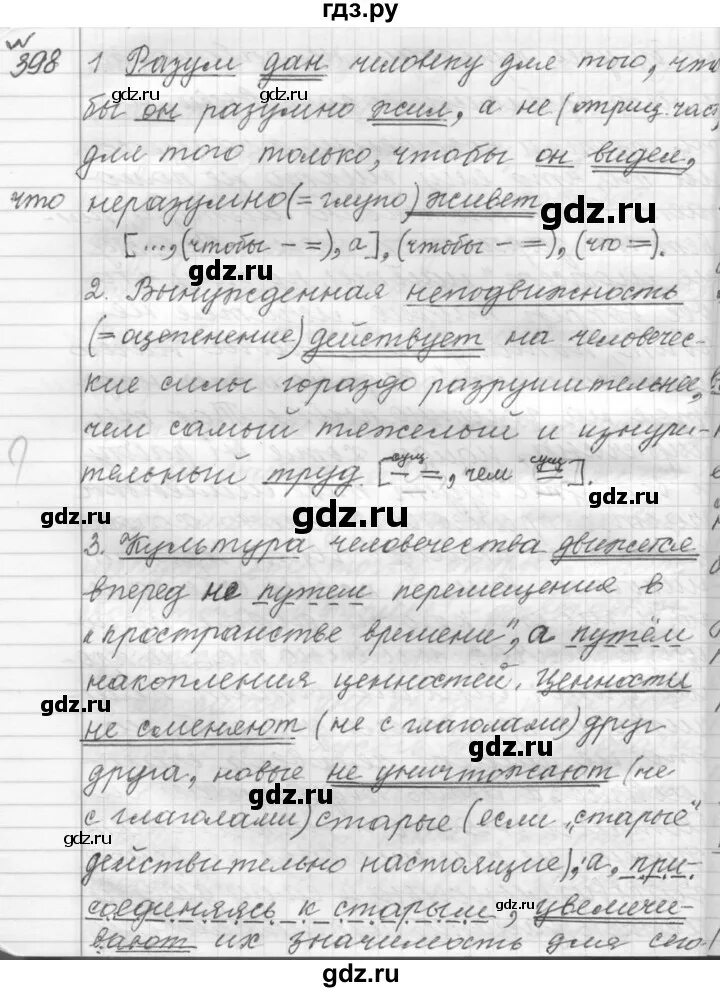 гдз.ру
№
398 1 Разум дан человеку для того, что
бы он разумно жил, а не (отриц. част.)
для того только, чтобы он видел,
что неразумно (= глупо) живет
[..., (чтобы – =), а], (чтобы – =), (что =).
2. Вынужденная неподвижность
(= оцепенение) действует на человечес-
кие силы гораздо разрушительнее,
чем самый тяжелый и изнури-
тельный труд. [сущ. – =, чем сущ. =].
3. Культура человечества движется
вперед не путем перемещения в
"пространстве времени", а путём
накопления ценностей. Ценности
не сменяют (не с глаголами) друг
друга, новые не уничтожают (не
с глаголами) старые (если "старые"
действительно настоящие), а, при-
соединяясь к старым, увеличи-
вают их значимость для сего-
gdz.ru
gdz.ru
gdz.ru
gdz.ru
gdz.ru
gdz.ru
gdz.ru
gdz.ru
gdz.ru
gdz.ru
gdz.ru
gdz.ru
gdz.ru
gdz.ru